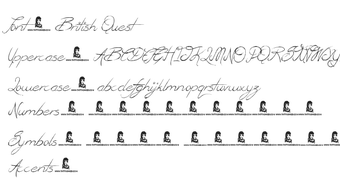 Font British Quest
Uppercase ABCDEFGHIJKLMNOPQRSTUVWXYZ
Lowercase abcdefghijklmnopqrstuvwxyz
Numbers
Symbols
Accents